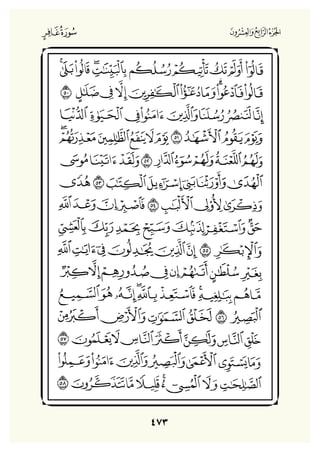 الجزء الرابع والعشرون
سورة غافر
قَالُوٓا۟ أَوَلَمْ تَكُ تَأْتِيكُمْ رُسُلُكُم بِٱلْبَيِّنَٰتِۖ قَالُوا۟ بَلَىٰۚ
قَالُوا۟ فَٱدْعُوا۟ۗ وَمَا دُعَٰٓؤُا۟ ٱلْكَٰفِرِينَ إِلَّا فِى ضَلَٰلٍ ٥٠
إِنَّا لَنَنصُرُ رُسُلَنَا وَٱلَّذِينَ ءَامَنُوا۟ فِى ٱلْحَيَوٰةِ ٱلدُّنْيَا
وَيَوْمَ يَقُومُ ٱلْأَشْهَٰدُ ٥١ يَوْمَ لَا يَنفَعُ ٱلظَّٰلِمِينَ مَعْذِرَتُهُمْۖ
وَلَهُمُ ٱللَّعْنَةُ وَلَهُمْ سُوٓءُ ٱلدَّارِ ٥٢ وَلَقَدْ ءَاتَيْنَا مُوسَى
ٱلْهُدَىٰ وَأَوْرَثْنَا بَنِىٓ إِسْرَٰٓءِيلَ ٱلْكِتَٰبَ ٥٣ هُدًى
وَذِكْرَىٰ لِأُو۟لِى ٱلْأَلْبَٰبِ ٥٤ فَٱصْبِرْ إِنَّ وَعْدَ ٱللَّهِ
حَقٌّ وَٱسْتَغْفِرْ لِذَنۢبِكَ وَسَبِّحْ بِحَمْدِ رَبِّكَ بِٱلْعَشِىِّ
وَٱلْإِبْكَٰرِ ٥٥ إِنَّ ٱلَّذِينَ يُجَٰدِلُونَ فِىٓ ءَايَٰتِ ٱللَّهِ
بِغَيْرِ سُلْطَٰنٍ أَتَىٰهُمْۙ إِن فِى صُدُورِهِمْ إِلَّا كِبْرٌ
مَّا هُم بِبَٰلِغِيهِۚ فَٱسْتَعِذْ بِٱللَّهِۖ إِنَّهُۥ هُوَ ٱلسَّمِيعُ
ٱلْبَصِيرُ ٥٦ لَخَلْقُ ٱلسَّمَٰوَٰتِ وَٱلْأَرْضِ أَكْبَرُ مِنْ
خَلْقِ ٱلنَّاسِ وَلَٰكِنَّ أَكْثَرَ ٱلنَّاسِ لَا يَعْلَمُونَ ٥٧
وَمَا يَسْتَوِى ٱلْأَعْمَىٰ وَٱلْبَصِيرُ وَٱلَّذِينَ ءَامَنُوا۟ وَعَمِلُوا۟
ٱلصَّٰلِحَٰتِ وَلَا ٱلْمُسِىٓءُۚ قَلِيلًا مَّا تَتَذَكَّرُونَ ٥٨
٤٧٣